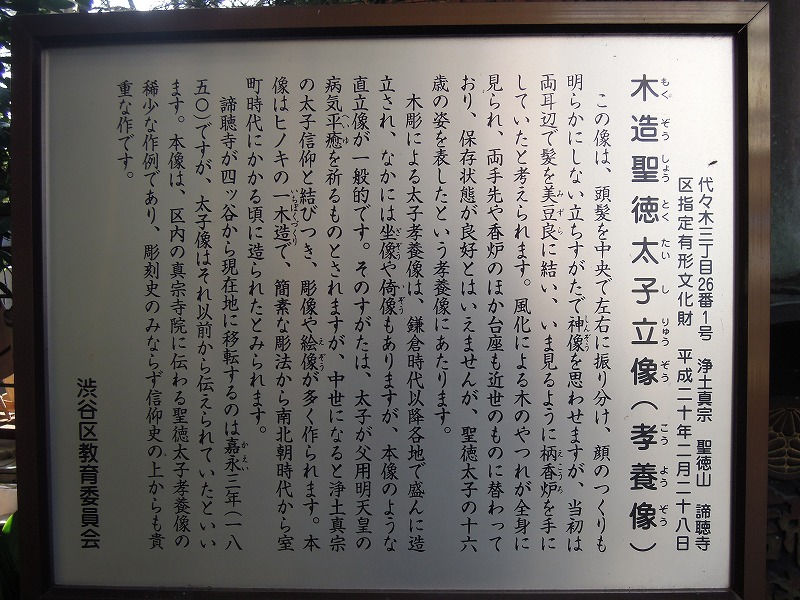 代々木三丁目26番1号　浄土真宗　聖徳山　諦聴寺
区指定有形文化財　平成二十年二月二十八日
木造聖徳太子立像（孝養像）
もくぞうしょうとくたいしりゅうぞう　こうようぞう
この像は、頭髪を中央で左右に振り分け、顔のつくりも
明らかにしない立ちすがたで神像を思わせますが、当初は
しんぞう
両耳辺で髪を美豆良に結い、いま見るように柄香炉を手に
みずら　えごうろ
していたと考えられます。風化による木のやつれが全身に
見られ、両手先や香炉のほか台座も近世のものに替わって
おり、保存状態が良好とはいえませんが、聖徳太子の十六
歳の姿を表したという孝養像にあたります。
木彫による太子孝養像は、鎌倉時代以降各地で盛んに造
立され、なかには坐像や倚像もありますが、本像のような
ざぞう　いぞう
直立像が一般的です。そのすがたは、太子が父用明天皇の
病気平癒を祈るものとされますが、中世になると浄土真宗
へいゆ
の太子信仰と結びつき、彫像や絵像が多く作られます。本
えぞう
像はヒノキの一木造で、簡素な彫法から南北朝時代から室
いちぼくづくり
町時代にかかる頃に造られたとみられます。
諦聴寺が四ッ谷から現在地に移転するのは嘉永三年（一八
かえい
五〇）ですが、太子像はそれ以前から伝えられていたといい
ます。本像は、区内の真宗寺院に伝わる聖徳太子孝養像の
稀少な作例であり、彫刻史のみならず信仰史の上からも貴
重な作です。
渋谷区教育委員会